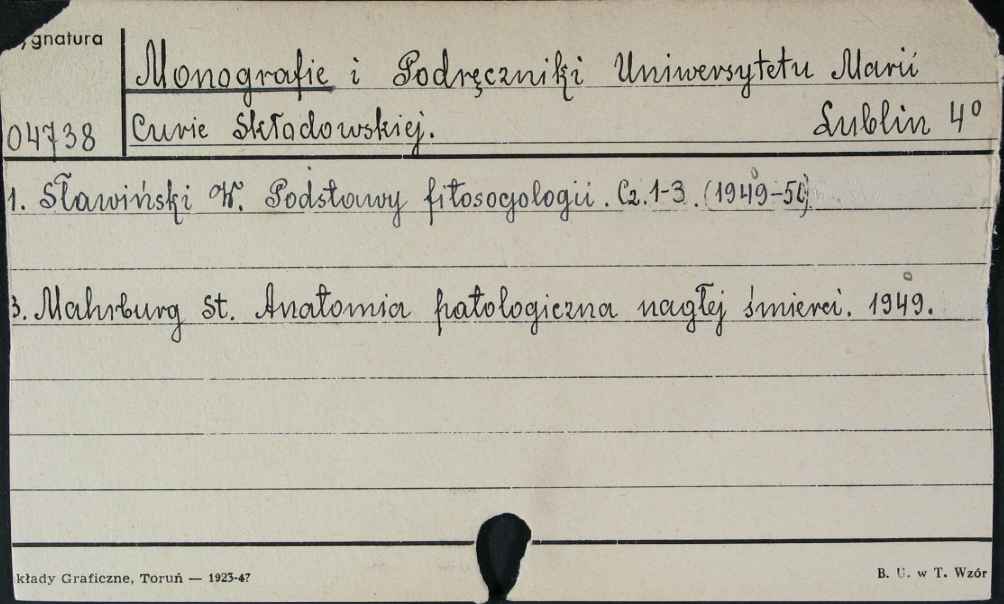 ygnatura
Monografie i Podręczniki Uniwersytetu Marii
04738
Curie Skłodowskiej. Lublin 4º
1. Sławiński W. Podstawy fitosocjologii. Cz. 1-3. (1949-50)
3. Mahrburg St. Anatomia patologiczna nagłej śmierci. 1949.
kłady Graficzne, Toruń — 1923-47
B. U. w T. Wzór